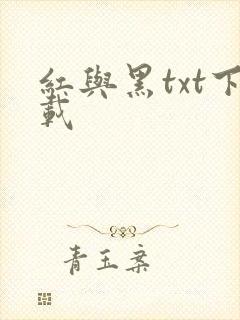 紅與黑txt下
載
青玉案